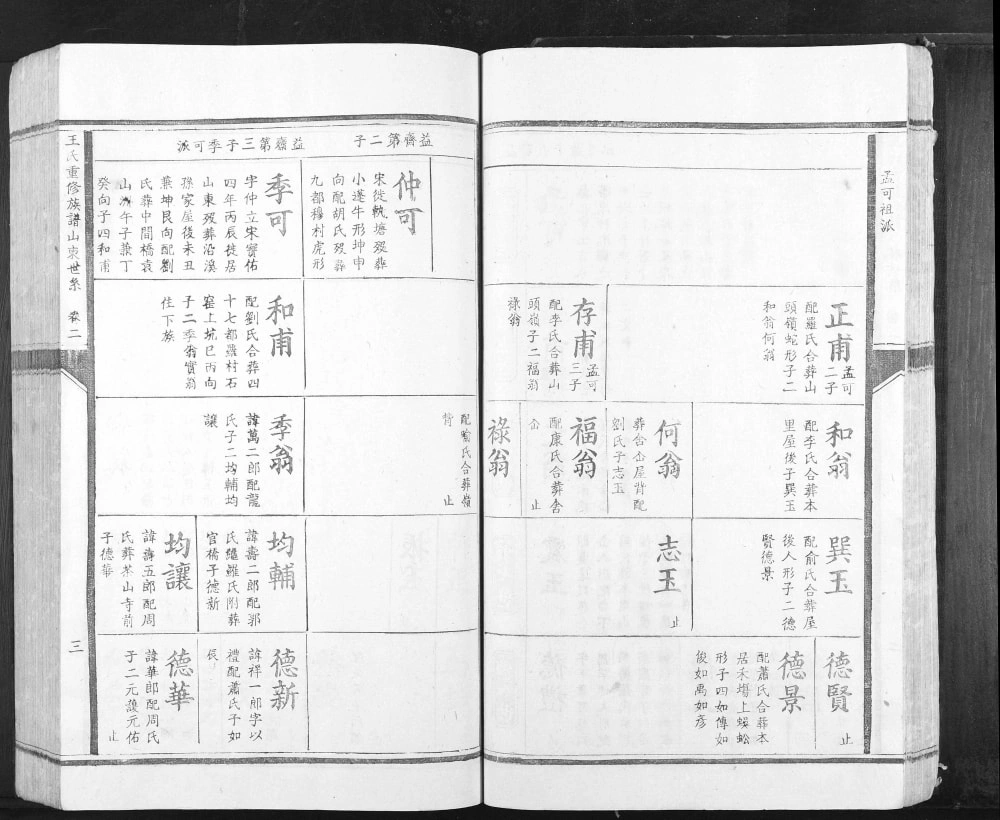 孟可祖派
正甫
孟可
二子
配羅氏合葬山
頭嶺蛇形子二
和翁何翁
存甫
孟可
三子
配李氏合葬山
頭嶺子二福翁
祿翁
和翁
配李氏合葬本
里屋後子巽玉
何翁
葬舍㟁屋背配
劉氏子志玉
福翁
配康氏合葬舍
㟁 止
祿翁
配喻氏合葬嶺
背 止
巽玉
配俞氏合葬屋
後人形子二德
賢德景
志玉
止
德賢
止
德景
配蕭氏合葬本
居禾塲上蜈蚣
形子四如傅如
後如禹如彥
益齋第二子
益齋第三子季可派
仲可
宋徙軌塘歿葬
小逕牛形坤申
向配胡氏歿葬
九都穆村虎形
季可
字仲立宋寳佑
四年丙辰徙居
山東歿葬沿溪
孫家屋後未丑
兼坤艮向配劉
氏葬中間橋袁
山㳌午子兼丁
癸向子四和甫
和甫
配劉氏合葬四
十七都羅村石
窑上坑巳丙向
子二季翁實翁
住下族
季翁
諱萬二郎配龍
氏子二均輔均
讓
均輔
諱壽二郎配郭
氏繼羅氏附葬
官橋子德新
均讓
諱壽五郎配周
氏葬茶山寺前
子德華
德新
諱祥一郎字以
禮配蕭氏子如
辰
德華
諱華郎配周氏
子二元護元佑
止
王氏重修族譜山東世系 卷二
三